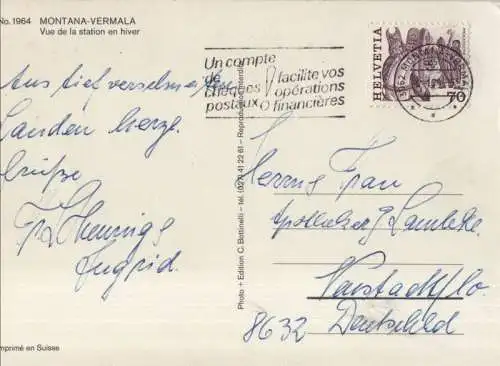 No. 1964 MONTANA-VERMALA
Vue de la station en hiver
Un compte
de
chèques
postaux
facilite vos
opérations
financières
HELVETIA
70
3962 MONTANA-VERMALA
Aus tief verschneiten
Landen herzl.
Grüße
Hennigs
Ingrid.
Photo + Edition C. Bettinelli – tél. (027) 41 22 61 – Reproduction interdite
Herrn Frau
Apotheker G
Neustadt/Co.
8632 Deutschland
Imprimé en Suisse